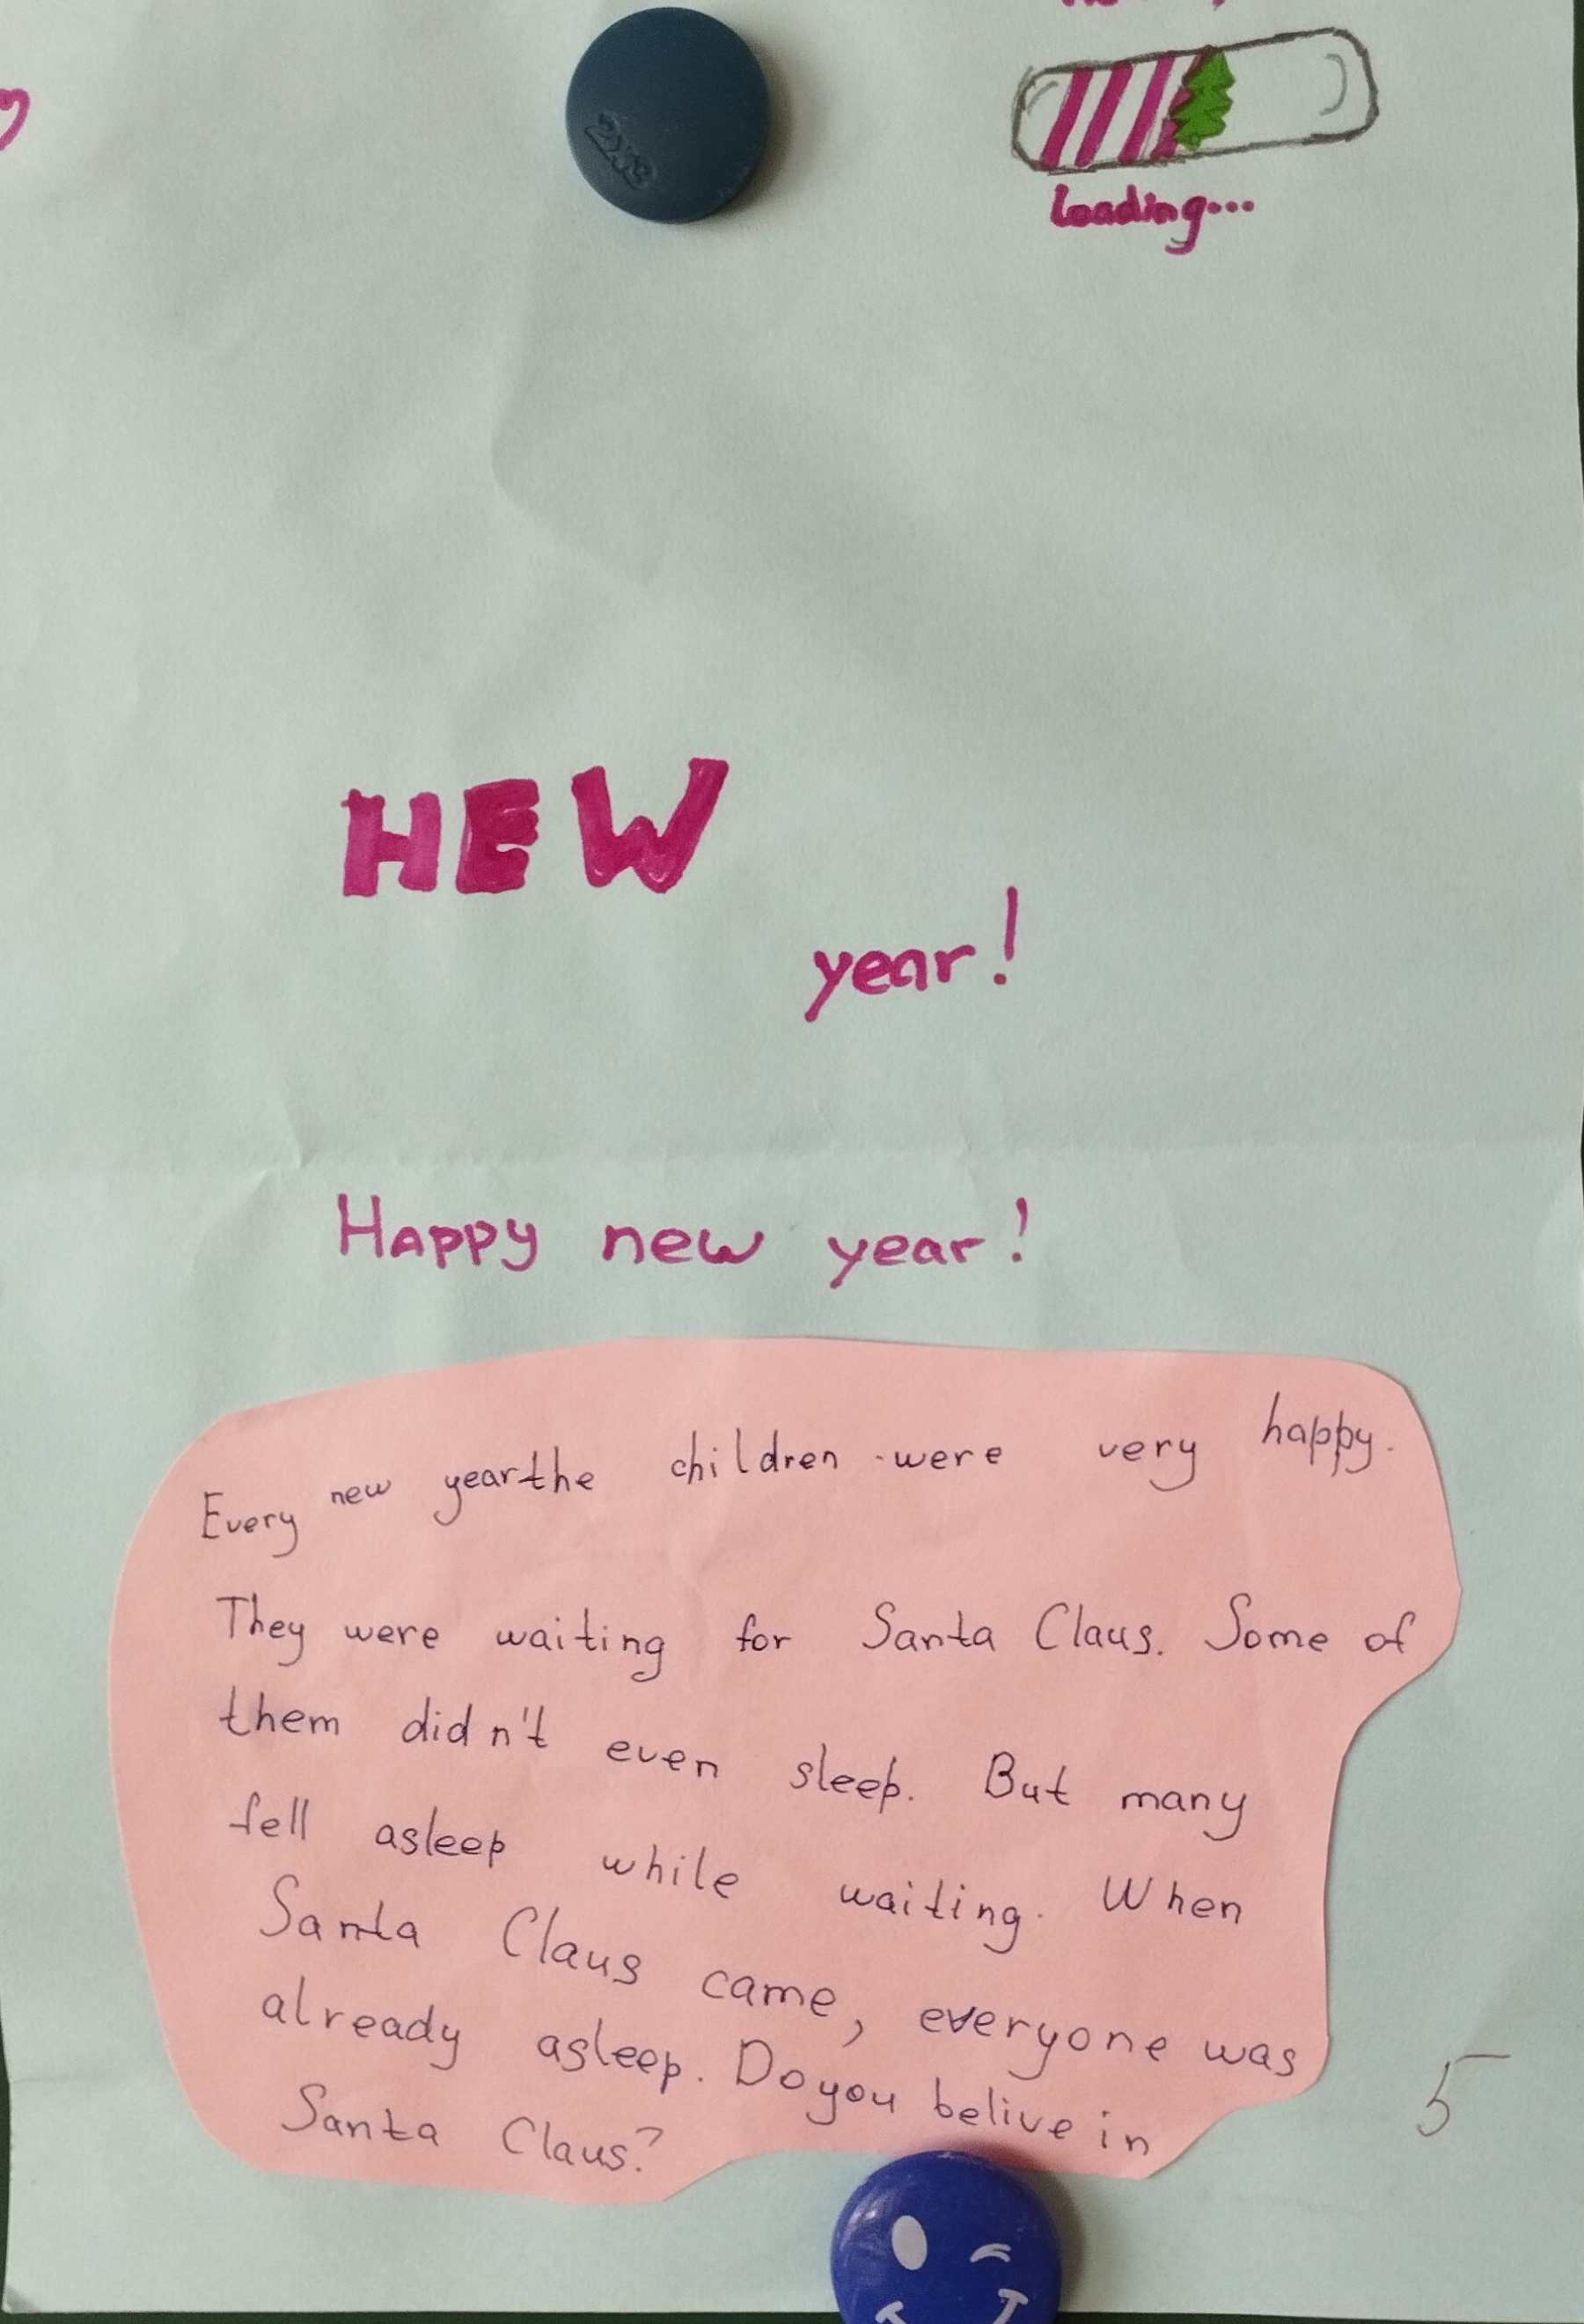 loading...
HEW
year!
Happy new year!
Every new yearthe children were very happy.
They were waiting for Santa Claus. Some of
them didn't even sleep. But many
fell asleep while waiting. When
Santa Claus came, everyone was
already asleep. Do you belive in
Santa Claus?
5